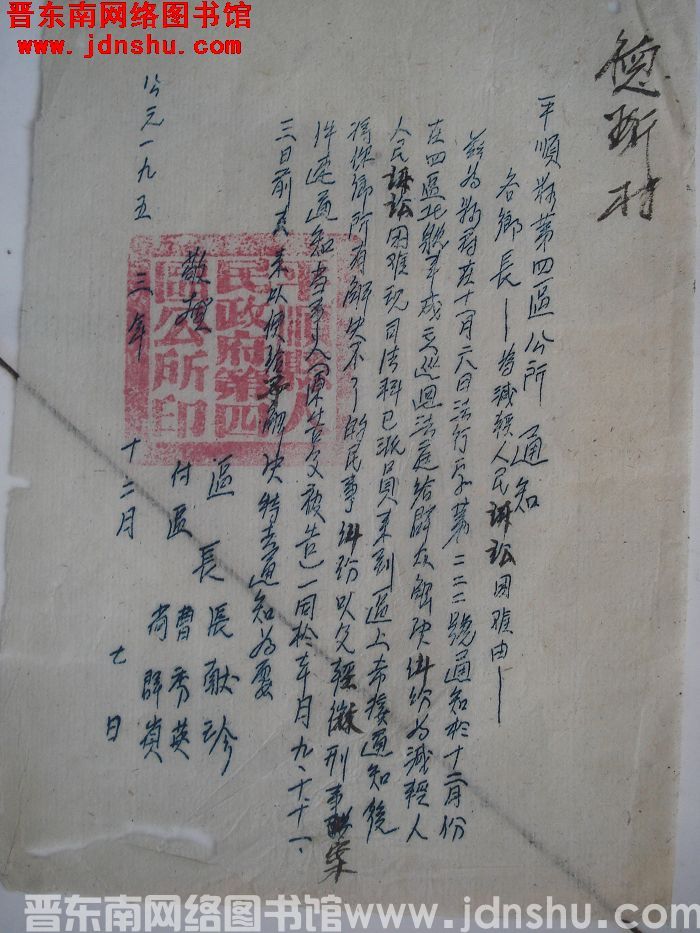 晋东南网络图书馆
www.jdnshu.com
德 村
平順縣第四區公所 通知
各鄉長——為減輕人民訴訟困难由——
茲為縣府在十一月 六日法行字第二二二號通知於十二月份
在四區 成立巡迴法庭給群众解决糾纷為減輕人
人民訴訟困难現司法科已派員来到 區上希接通知後
將你鄉所有解决不了的民事糾纷以及輕微刑事案
件速通知当事人(原告及被告)一同於本月九、十、十一、
三日前 来以便給予解决特此通知為要
敬禮
區長 張献珍
付區 曹秀英
尚群貞
公元一九五三年 十二月 七日
平順縣人民政府第四區公所印
晋东南网络图书馆 www.jdnshu.com